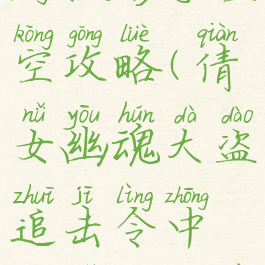 kōng gōng lüè qiàn
空攻略(倩
nǚ yōu hún dà dào
女幽魂大盗
zhuī jī lìng zhōng
追击令中